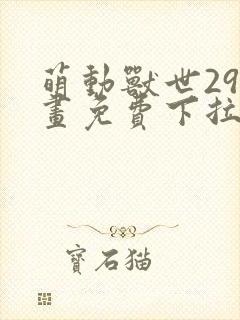 萌動獸世29
畫免費下拉
寶石猫